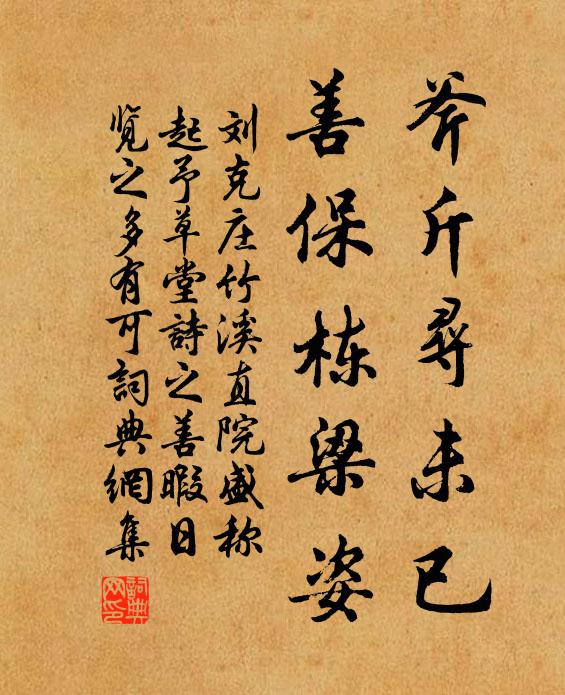 斧斤尋未已
善保栋梁姿
刘克庄竹溪直院盛称
起予草堂詩之善暇日
覧之多有可詞典網集
詞典网印